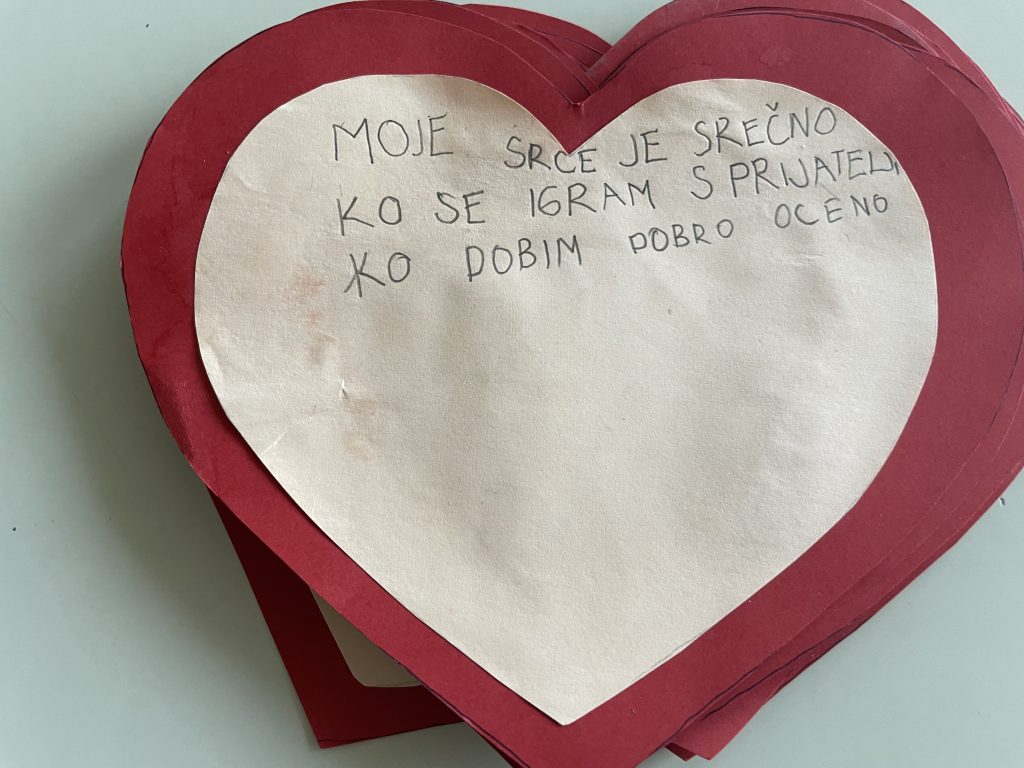 MOJE SRCE JE SREČNO
KO SE IGRAM S PRIJATELJI
KO DOBIM DOBRO OCENO